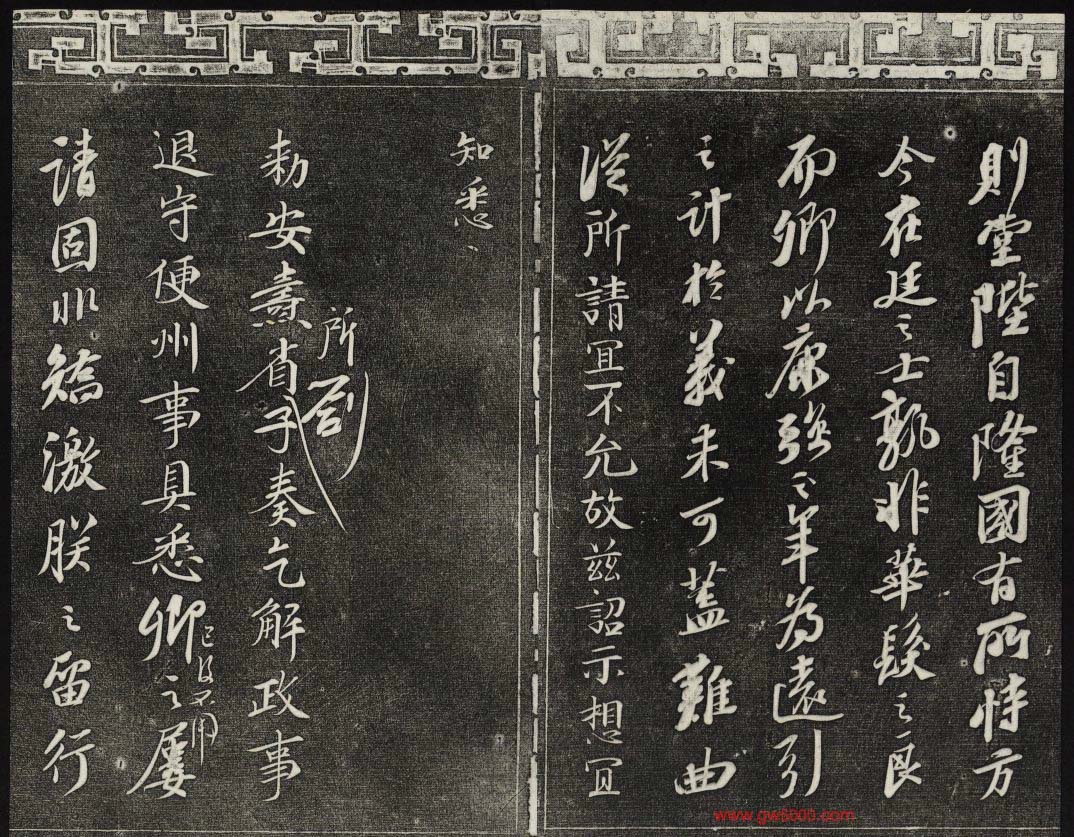 則堂陛自隆國有所恃方
今在廷之士孰非華髮之良
而卿以康強之年為遠引
之計於義未可蓋難曲
從所請宜不允故茲詔示想宜
知悉
敕安燾省所劄子奏乞解政事
退守便州事具悉卿之屢
已後不用
請固非矯激朕之留行
www.gw5000.com